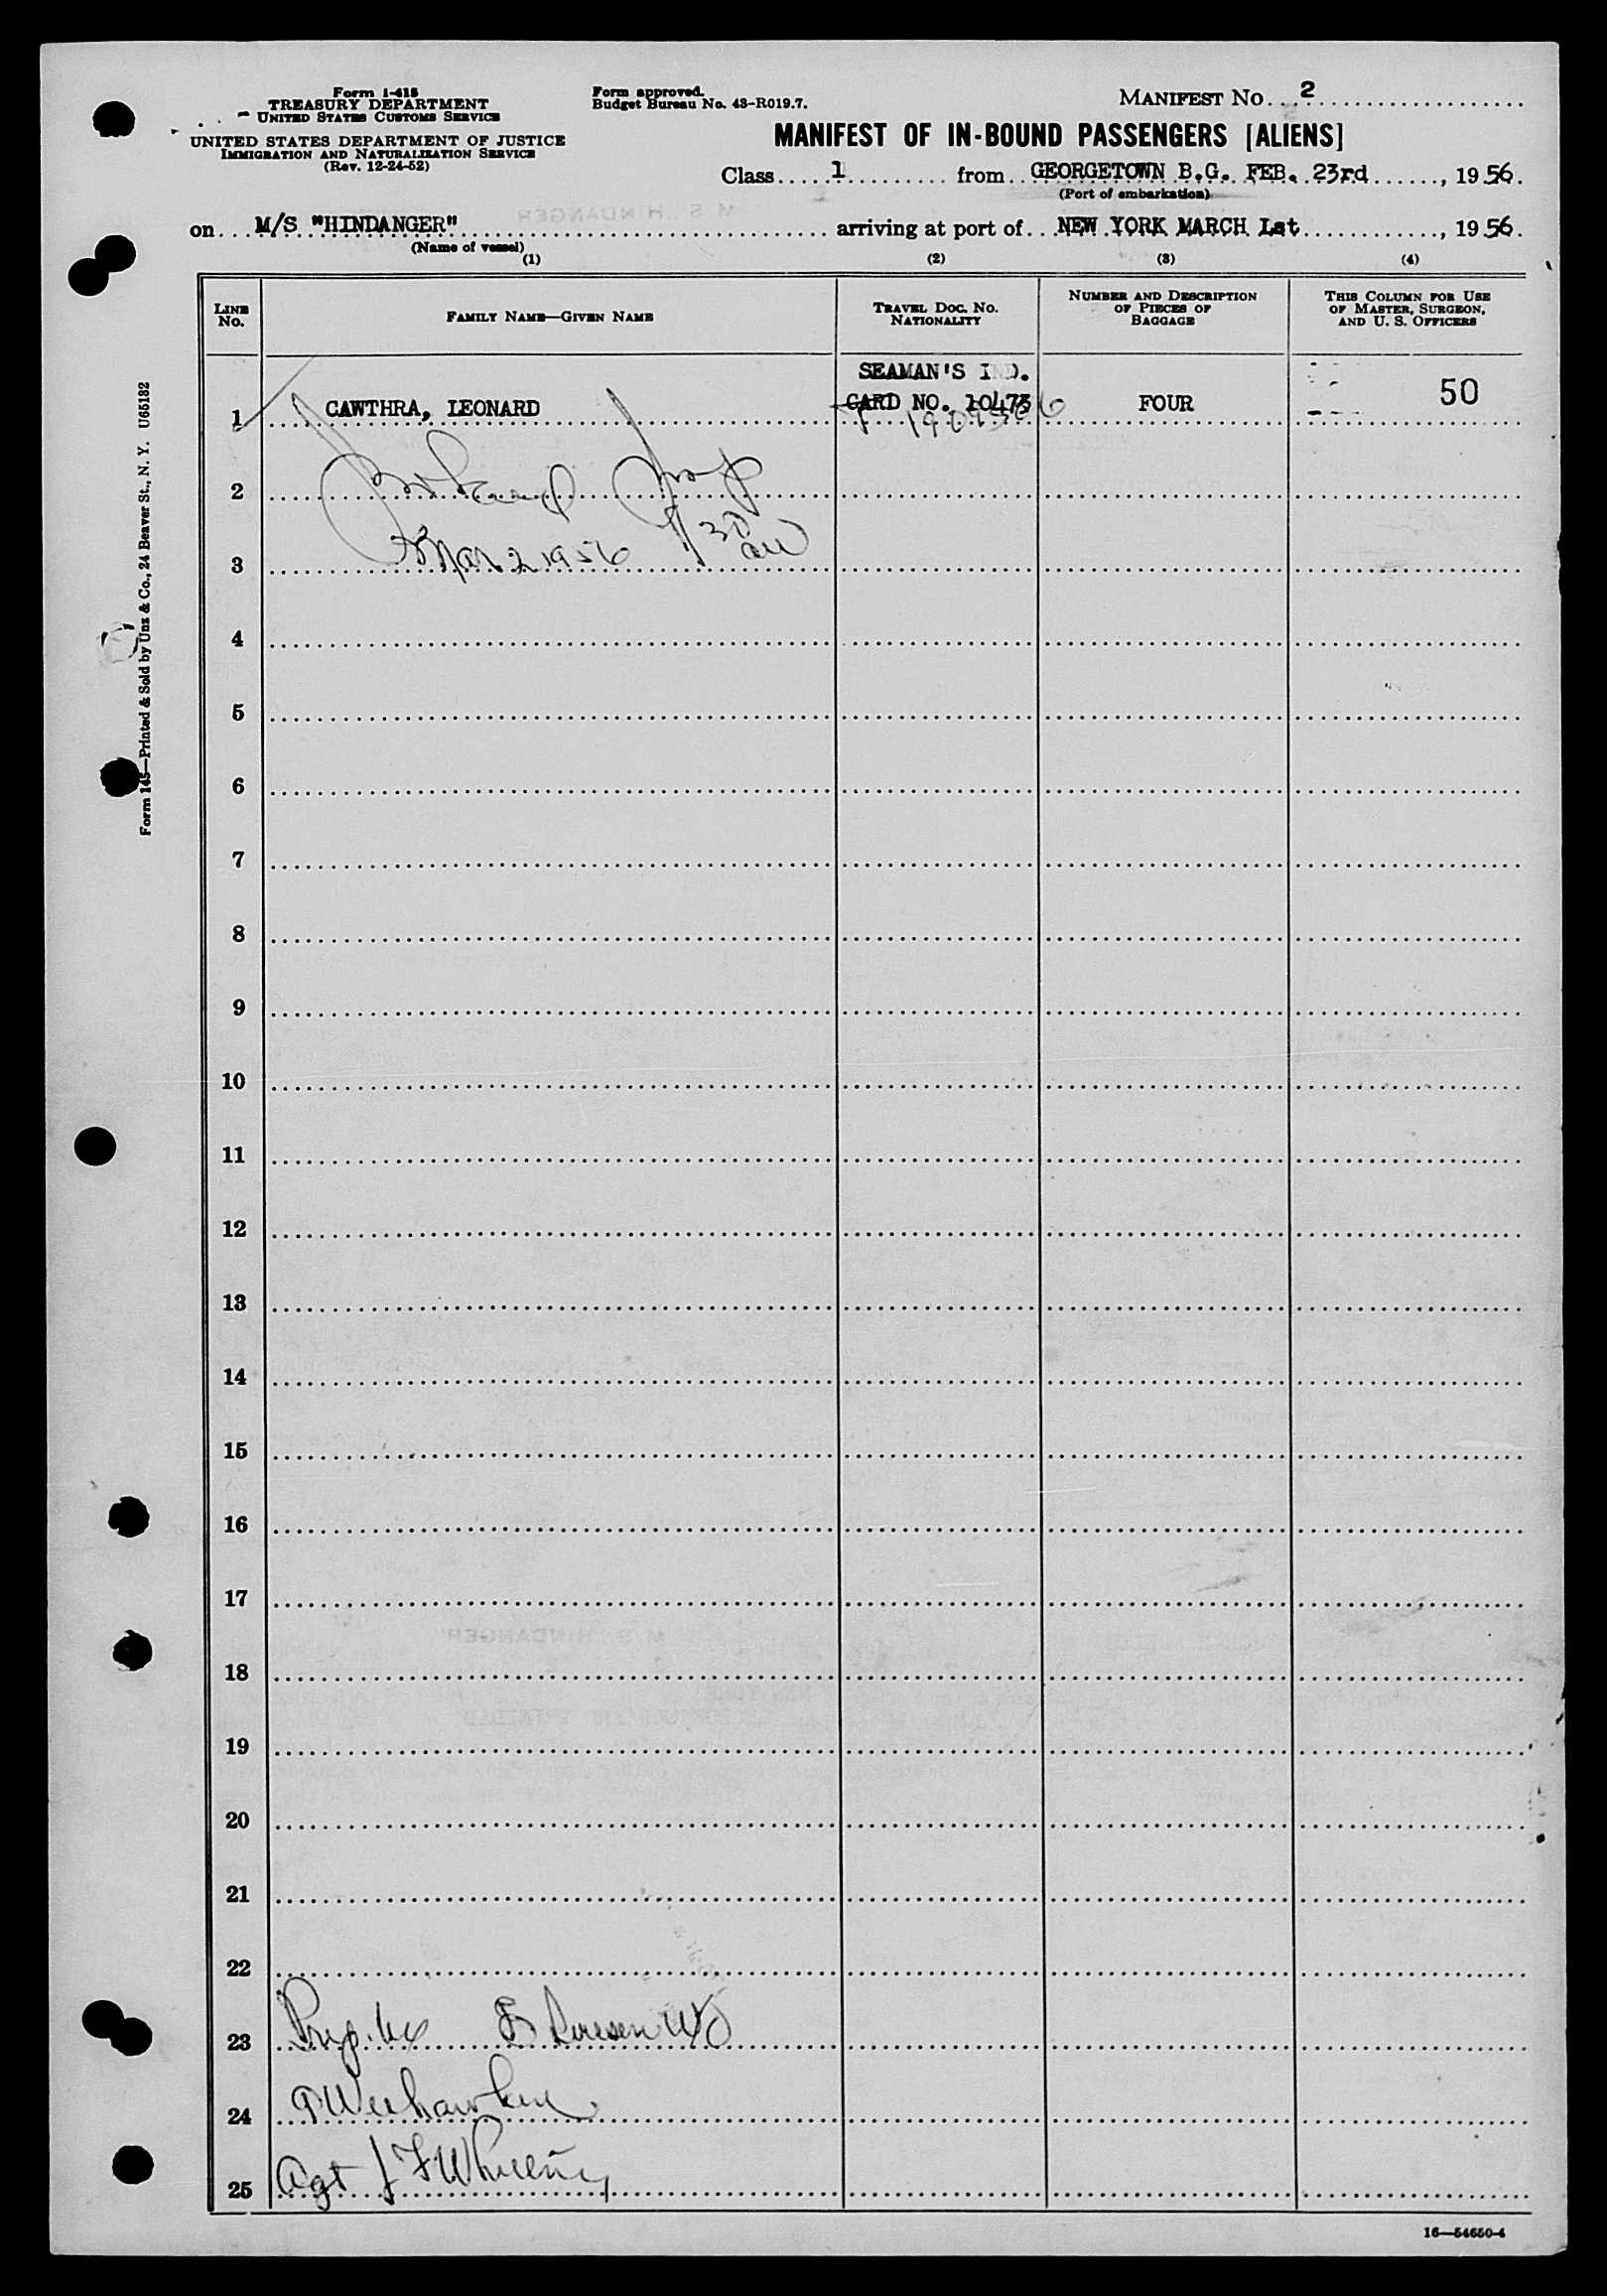 Form I-418
TREASURY DEPARTMENT
UNITED STATES CUSTOMS SERVICE
UNITED STATES DEPARTMENT OF JUSTICE
IMMIGRATION AND NATURALIZATION SERVICE
(Rev. 12-24-52)
Form approved.
Budget Bureau No. 43-R019.7.
MANIFEST NO. 2
MANIFEST OF IN-BOUND PASSENGERS [ALIENS]
Class 1 from GEORGETOWN B.G. FEB. 23rd, 1956.
(Port of embarkation)
on M/S "HINDANGER" arriving at port of NEW YORK MARCH 1st, 1956.
(Name of vessel)
(1) (2) (3) (4)
LINE NO. FAMILY NAME—GIVEN NAME TRAVEL DOC. NO. NATIONALITY NUMBER AND DESCRIPTION OF PIECES OF BAGGAGE THIS COLUMN FOR USE OF MASTER, SURGEON, AND U. S. OFFICERS
SEAMAN'S I D.
1 CAWTHRA, LEONARD CARD NO. 10473 FOUR 50
2
3 Mar 2 1956
4
5
6
7
8
9
10
11
12
13
14
15
16
17
18
19
20
21
22
23
24 Weehawken
25 Agt
Form 145—Printed & Sold by Unz & Co., 24 Beaver St., N. Y. U65182
16—54650-4